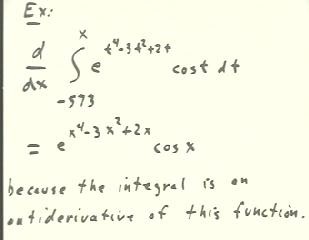 Ex:
d/dx ∫_{-573}^{x} e^{t^4-3t^2+2t} cost dt
= e^{x^4-3x^2+2x} cos x
because the integral is an
antiderivative of this function.